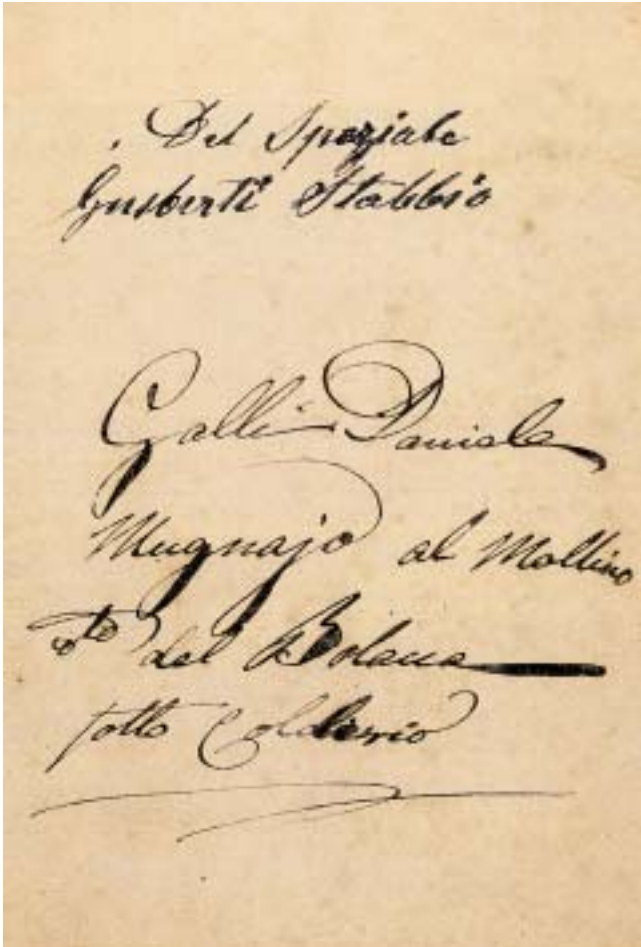 Del Speziale
Gusberti Stabbio
Galli Daniele
Mugnajo al Mollino
dto del Bolacca
sotto Coldrerio